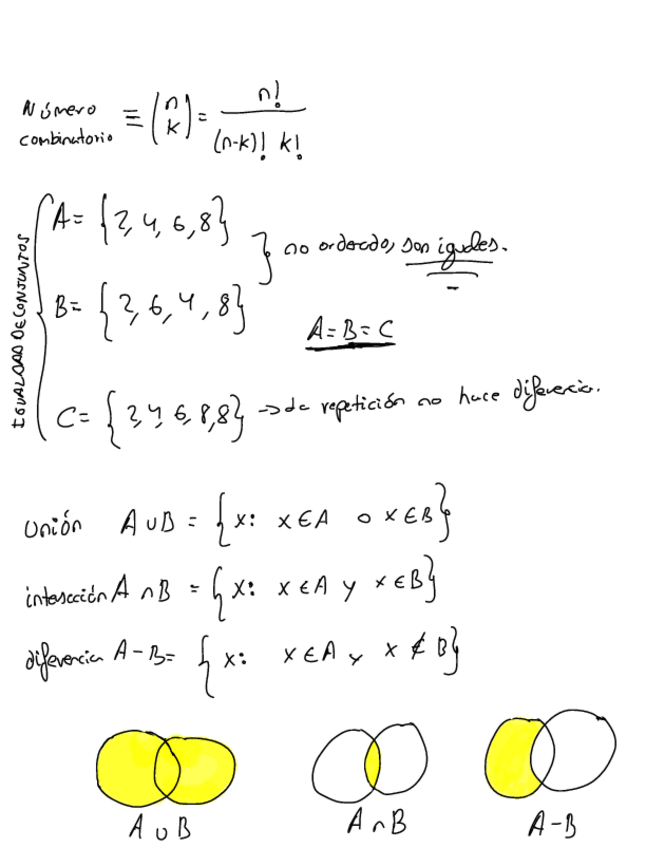 Número combinatorio ≡ (n k) = n! / (n-k)! k!
IGUALDAD DE CONJUNTOS
A = {2, 4, 6, 8}
B = {2, 6, 4, 8}
} no ordenado, son iguales.
A = B = C
C = {2, 4, 6, 8, 8} → la repetición no hace diferencia.
Unión A ∪ B = {x: x ∈ A o x ∈ B}
intersección A ∩ B = {x: x ∈ A y x ∈ B}
diferencia A - B = {x: x ∈ A y x ∉ B}
A ∪ B
A ∩ B
A - B